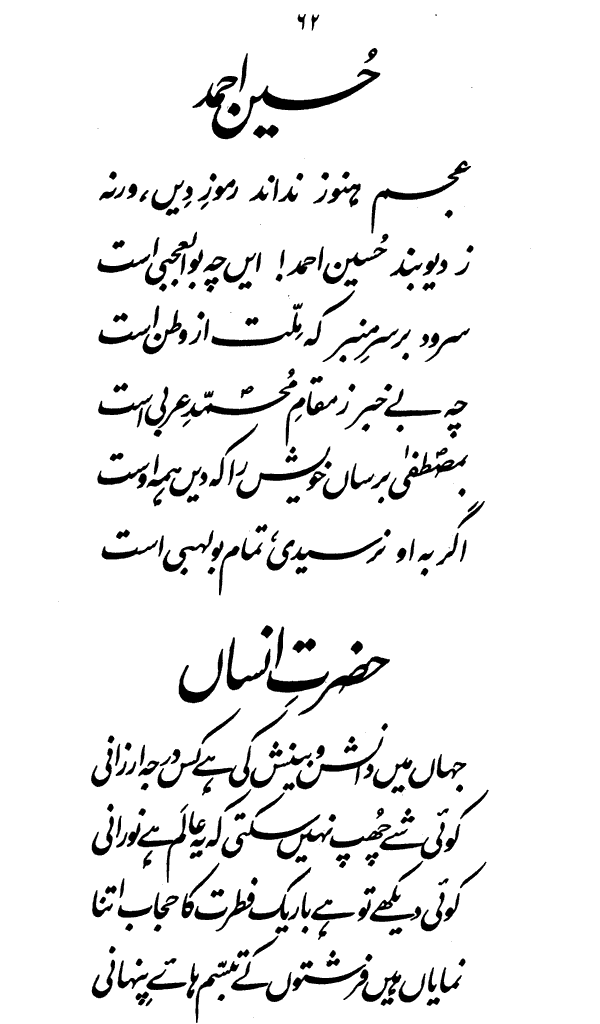 ۶۲
حُسین احمد
عجم ہنوز نداند رموزِ دِیں، ورنہ
ز دیوبند حُسین احمد! ایں چہ بوالعجبی است
سرود بر سرِ منبر کہ مِلّت از وطن است
چہ بے خبر ز مقامِ مُحمّدؐ عربی است
بمصطفیٰؐ برساں خویش را کہ دیں ہمہ اوست
اگر بہ او نرسیدی، تمام بولہبی است
حضرتِ انساں
جہاں میں دانش و بینش کی ہے کس درجہ ارزانی
کوئی شے چھُپ نہیں سکتی کہ یہ عالَم ہے نورانی
کوئی دیکھے تو ہے باریک فطرت کا حجاب اتنا
نمایاں ہیں فرشتوں کے تبسّم ہائے پِنہانی